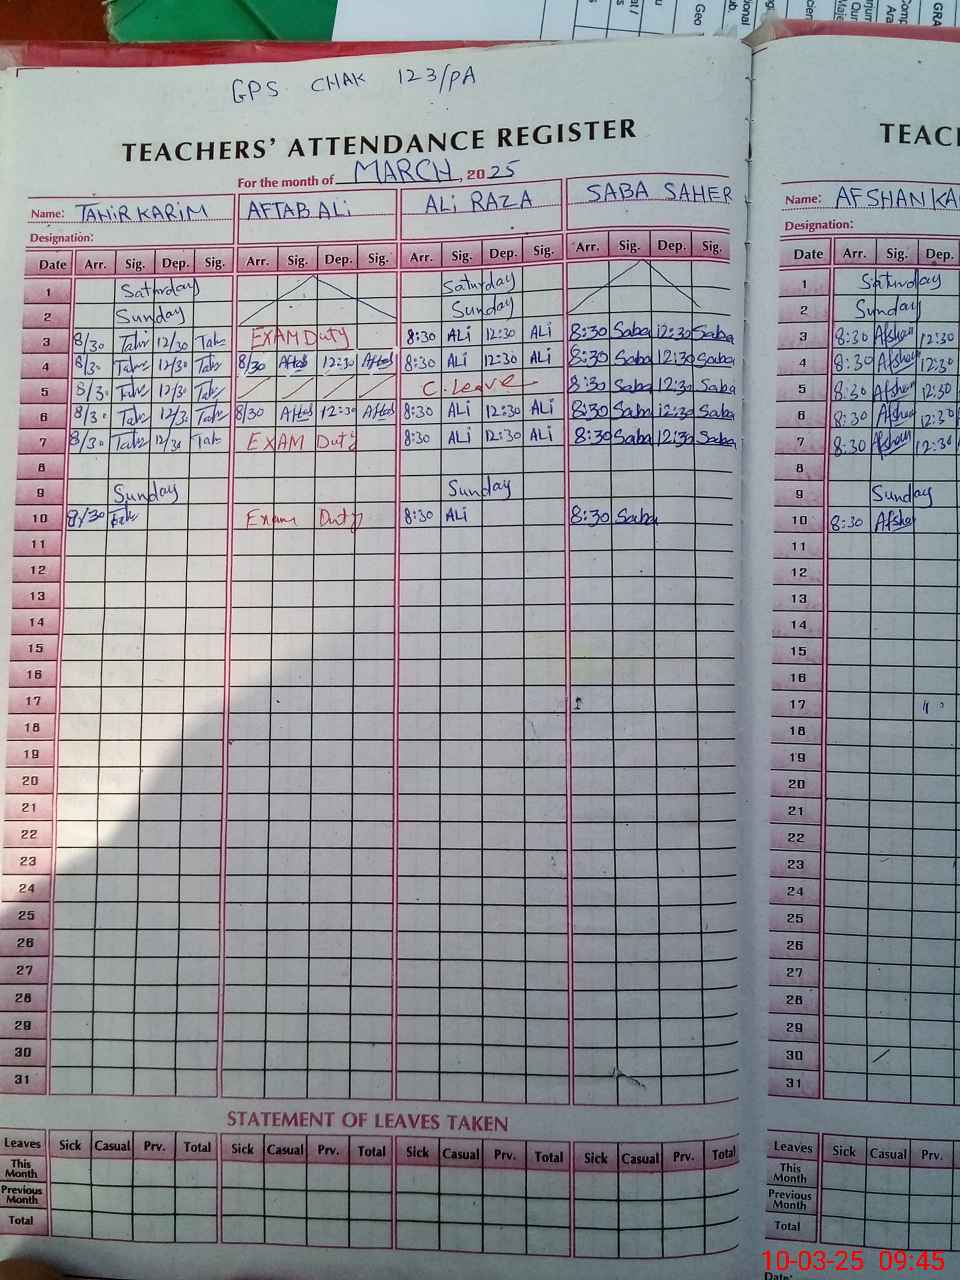 GPS CHAK 123/PA
TEACHERS' ATTENDANCE REGISTER
For the month of MARCH, 2025
Name: TAHIR KARIM AFTAB ALI ALI RAZA SABA SAHER
Designation:
Date Arr. Sig. Dep. Sig. Arr. Sig. Dep. Sig. Arr. Sig. Dep. Sig. Arr. Sig. Dep. Sig.
1 Saturday Saturday
2 Sunday Sunday
3 8/30 Tahir 12/30 Tahir EXAM Duty 8:30 ALI 12:30 ALI 8:30 Saba 12:30 Saba
4 8/30 Tahir 12/30 Tahir 8/30 Aftab 12:30 Aftab 8:30 ALI 12:30 ALI 8:30 Saba 12:30 Saba
5 8/30 Tahir 12/30 Tahir C. Leave 8:30 Saba 12:30 Saba
6 8/30 Tahir 12/30 Tahir 8/30 Aftab 12:30 Aftab 8:30 ALI 12:30 ALI 8:30 Saba 12:30 Saba
7 8/30 Tahir 12/30 Tahir EXAM Duty 8:30 ALI 12:30 ALI 8:30 Saba 12:30 Saba
8
9 Sunday Sunday
10 8/30 Tahir Exam Duty 8:30 ALI 8:30 Saba
11
12
13
14
15
16
17
18
19
20
21
22
23
24
25
26
27
28
29
30
31
STATEMENT OF LEAVES TAKEN
Leaves Sick Casual Prv. Total Sick Casual Prv. Total Sick Casual Prv. Total Sick Casual Prv. Total
This Month
Previous Month
Total
TEACH
Name: AFSHAN KA
Designation:
Date Arr. Sig. Dep.
1 Saturday
2 Sunday
3 8:30 Afshan 12:30
4 8:30 Afshan 12:30
5 8:30 Afshan 12:30
6 8:30 Afshan 12:30
7 8:30 Afshan 12:30
8
9 Sunday
10 8:30 Afshan
11
12
13
14
15
16
17
18
19
20
21
22
23
24
25
26
27
28
29
30
31
Leaves Sick Casual Prv.
This Month
Previous Month
Total
Date:
10-03-25 09:45